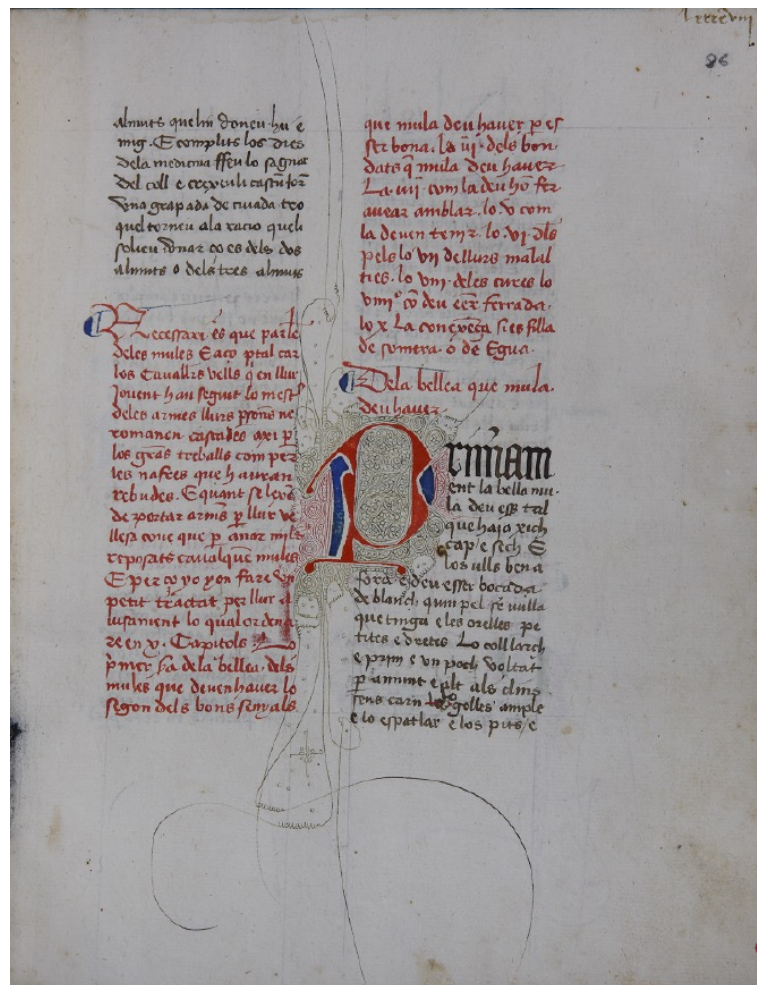 lxxxxviii
86
almuts quelin doneu hu e
mig. E complits los dies
dela medicina ffeu lo sagnar
del coll e
vna grapada de ciuada tro
quel torneu ala racio queli
solieu donar ço es dels dos
almuts o dels tres almuts
Necessari es que parle
deles mules E aço ptal car
los Cauallrs vells q en llur
Jouent han seguit lo mest
deles armes llurs psons ne
romanen casades axi p
los grãs treballs com per
les nafres que hauran
rebudes. E quant se lexẽ
de portar armˢ p llur ve
llesa coue que p anar mes
reposats caualquẽ mules
E per ço yo yon fare vn
petit tractat per llur a
lo qual ordena
re en x. Capitols. Lo
pmer sa dela bellea. dels
mules que deuen hauer lo
segon dels bons senyals
que mula deu hauer p es
ser bona. lo iii. dels bon
dats q mula deu hauer
Lo iiii com la deu hõ fer
auear amblar. lo. v com
la deuen tenir. lo. vi. dls
pels lo vii dellurs malal
ties. lo viii. deles cures lo
viiiiº cõ deu eẽr ferrada.
lo x La conexẽça si es filla
de somera. o de Egua.
Dela bellea que mula.
deu hauer.
Primam
ent la bella mu
la deu ess tal
que haia xich
cap e sech E
los ulls ben a
fora e deu esser bocada
de blanch quin pel se vulla
que tinga e les orelles pe
tites e dretes Lo coll larch
e prim e vn poch voltat
p amunt e plt als clins
sens carn golles ample
e lo espatlar e los pits e